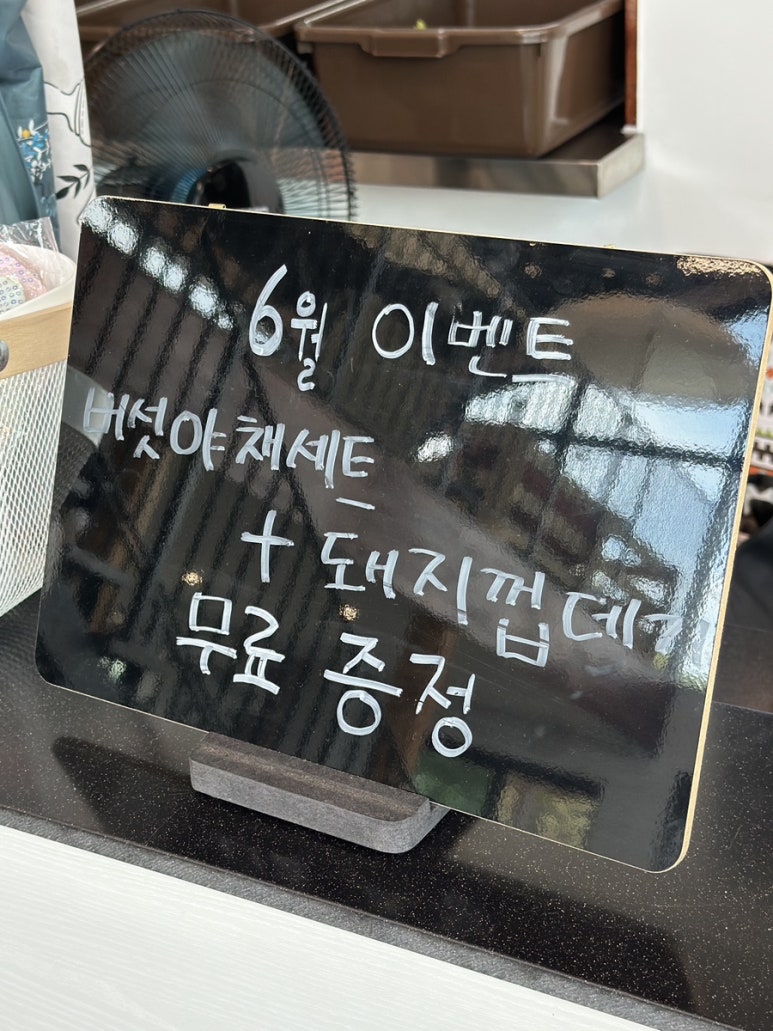 6월 이벤트
버섯야채세트
+ 돼지껍데기
무료 증정